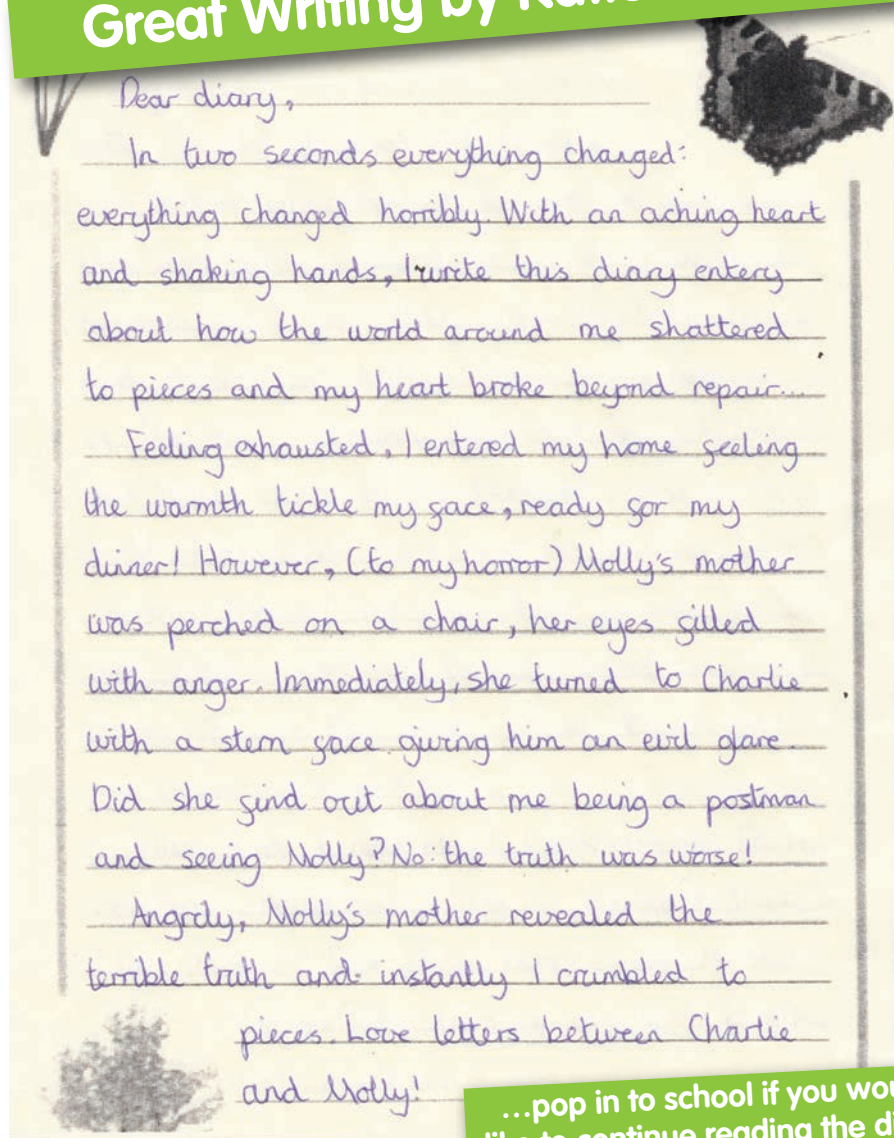 Great Writing by
Dear diary,
In two seconds everything changed:
everything changed horribly. With an aching heart
and shaking hands, I write this diary entery
about how the world around me shattered
to pieces and my heart broke beyond repair...
Feeling exhausted, I entered my home feeling
the warmth tickle my face, ready for my
dinner! However, (to my horror) Molly's mother
was perched on a chair, her eyes filled
with anger. Immediately, she turned to Charlie
with a stern face giving him an evil glare.
Did she find out about me being a postman
and seeing Molly? No: the truth was worse!
Angrily, Molly's mother revealed the
terrible truth and instantly I crumbled to
pieces. Love letters between Charlie
and Molly!
...pop in to school if you
like to continue reading the